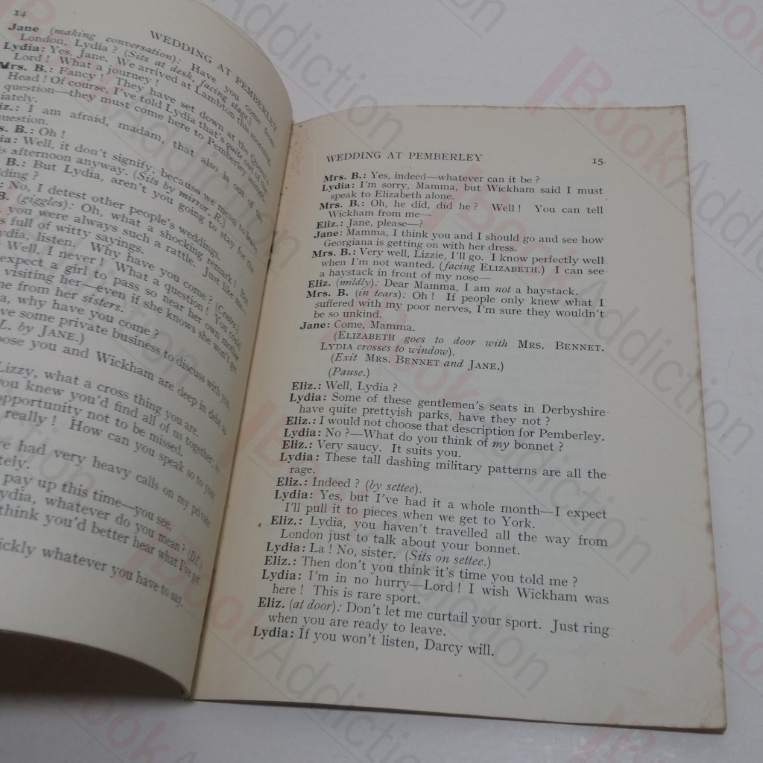 14
WEDDING AT PEMBERLEY
Jane (making conversation): Have you come from
London, Lydia? (Sits at desk, facing stage.)
Lydia: Yes, Jane. We arrived at Lambton this morning.
Lord! What a journey!
Mrs. B.: Fancy! They have set down at the
Head! Of course, I've told Lydia that's quite out of the
question—they must come here to Pemberley
iately.
iz.: I am afraid, madam, that also is out of the
question.
s. B.: Oh!
ia: Well, it don't signify, because we
is afternoon anyway. (Sits by mirror R.)
B.: But Lydia, aren't you going to stay for the
dding?
: No, I detest other people's weddings.
B. (giggles): Oh, what a shocking remark! But
you were always such a rattle. Just like
s full of witty sayings.
ydia, listen. Why have you come?
Well, I never! What a question!
expect a girl to pass so near her own
visiting her—even if she knows she won't get
ne from her sisters.
a, why have you come?
ve some private business to discuss with you.
L. by JANE.)
pose you and Wickham are deep in debt
Lizzy, what a cross thing you are.
you knew you'd find all of us together,
opportunity not to be missed.
really! How can you speak so to your
re had very heavy calls on my private
tely.
pay up this time—you see.
ydia, whatever do you mean?
think you'd better hear what I've got
ickly whatever you have to say.
WEDDING AT PEMBERLEY 15
Mrs. B.: Yes, indeed—whatever can it be?
Lydia: I'm sorry, Mamma, but Wickham said I must
speak to Elizabeth alone.
Mrs. B.: Oh, he did, did he? Well! You can tell
Wickham from me—
Eliz.: Jane, please—?
Jane: Mamma, I think you and I should go and see how
Georgiana is getting on with her dress.
Mrs. B.: Very well, Lizzie, I'll go. I know perfectly well
when I'm not wanted. (facing ELIZABETH.) I can see
a haystack in front of my nose—
Eliz. (mildly): Dear Mamma, I am not a haystack.
Mrs. B. (in tears): Oh! If people only knew what I
suffered with my poor nerves, I'm sure they wouldn't
be so unkind.
Jane: Come, Mamma.
(ELIZABETH goes to door with MRS. BENNET.
LYDIA crosses to window).
(Exit MRS. BENNET and JANE.)
(Pause.)
Eliz.: Well, Lydia?
Lydia: Some of these gentlemen's seats in Derbyshire
have quite prettyish parks, have they not?
Eliz.: I would not choose that description for Pemberley.
Lydia: No?—What do you think of my bonnet?
Eliz.: Very saucy. It suits you.
Lydia: These tall dashing military patterns are all the
rage.
Eliz.: Indeed? (by settee).
Lydia: Yes, but I've had it a whole month—I expect
I'll pull it to pieces when we get to York.
Eliz.: Lydia, you haven't travelled all the way from
London just to talk about your bonnet.
Lydia: La! No, sister. (Sits on settee.)
Eliz.: Then don't you think it's time you told me?
Lydia: I'm in no hurry—Lord! I wish Wickham was
here! This is rare sport.
Eliz. (at door): Don't let me curtail your sport. Just ring
when you are ready to leave.
Lydia: If you won't listen, Darcy will.
BookAddiction